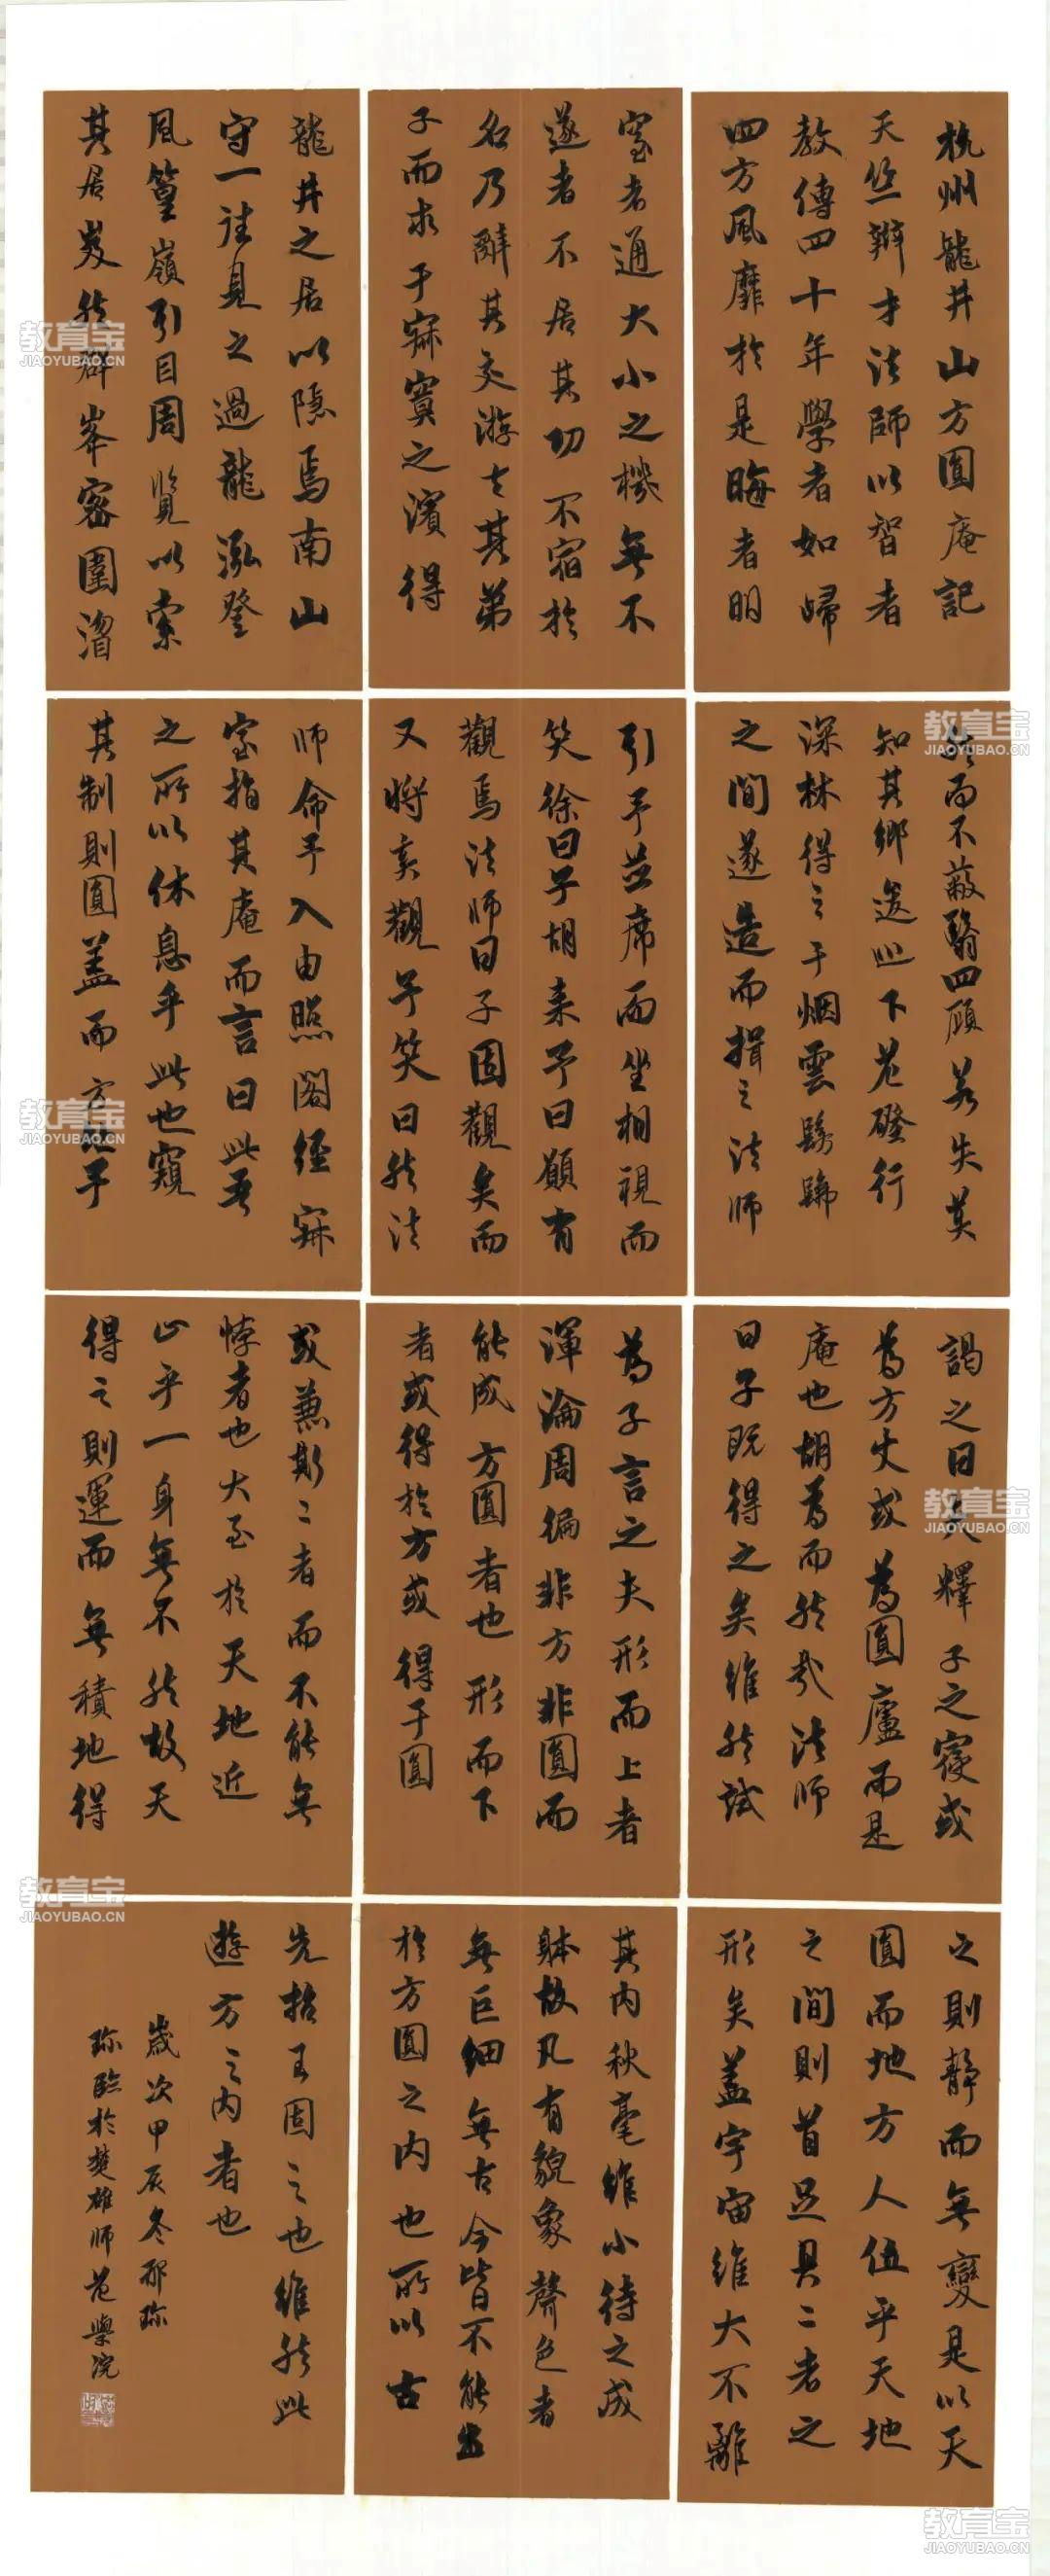 杭州龍井山方圓庵記
天竺辯才法師以智者
教傳四十年學者如歸
四方風靡於是晦者明
窒者通大小之機無不
遂者不居其功不宿於
名乃辭其交游去其弟
子而求于寂寞之濱得
龍井之居以隱焉南山
守一往見之過龍泓登
風篁嶺引目周覽以索
其居岌然群峯密圍溍
然而不蔽翳四顧若失莫
知其鄉逡巡下危磴行
深林得之于烟雲髣髴
之間遂造而揖之法師
引予並席而坐相視而
笑徐曰子胡來予曰願有
觀焉法師曰子固觀矣而
又將奚觀予笑曰然法
師命予入由照閣經寂
室指其庵而言曰此吾
之所以休息乎此也窺
其制則圓蓋而方址予
謁之曰夫釋子之寢或
為方丈或為圓廬而是
庵也胡為而然哉法師
曰子既得之矣雖然試
為子言之夫形而上者
渾淪周徧非方非圓而
能成方圓者也形而下
者或得於方或得于圓
或兼斯二者而不能無
悖者也大至於天地近
止乎一身無不然故天
得之則運而無積地得
之則靜而無變是以天
圓而地方人位乎天地
之間則首足具二者之
形矣蓋宇宙雖大不離
其內秋毫雖小待之成
體故凡有貌象聲色者
無巨細無古今皆不能出
於方圓之內也所以古
先哲王因之也雖然此
遊方之內者也
歲次甲辰冬
臨於楚雄師范學院
教育宝
JIAOYUBAO.CN
教育宝
JIAOYUBAO.CN
教育宝
JIAOYUBAO.CN
教育宝
JIAOYUBAO.CN
教育宝
JIAOYUBAO.CN
教育宝
JIAOYUBAO.CN